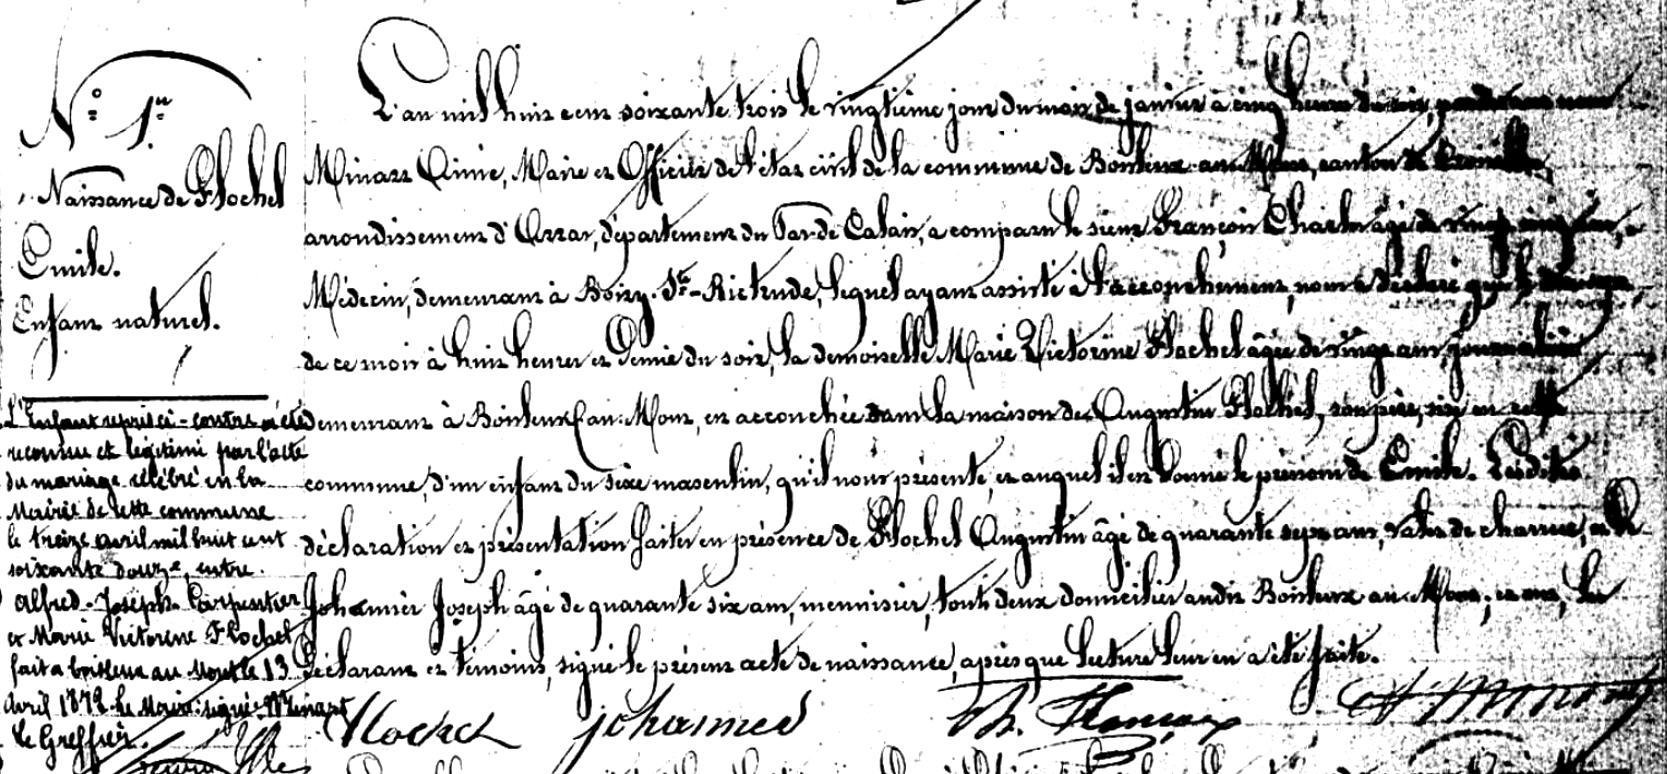 N° 1er
Naissance de Flochel
Emile.
Enfant naturel.
L'Enfant repris ci-contre a été
reconnu et légitimé par l'acte
du mariage célébré en la
Mairie de cette commune
le treize avril mil huit cent
soixante douze, entre
Alfred-Joseph Carpentier
et Marie Victorine Flochel
fait a boisleux au Mont le 13
Avril 1872 le Maire: signé Minart
Le Greffier.
L'an mil huit cent soixante trois le vingtième jour du mois de janvier à cinq heures du soir, pardevant nous
Minart Aimé, Maire et Officier de l'état civil de la commune de Boisleux-au-Mont, canton de Croisilles,
arrondissement d'Arras, département du Pas-de-Calais, a comparu le sieur François Charles âgé de vingt cinq ans,
Médecin, demeurant à Boiry-Ste-Rictrude, lequel ayant assisté à l'accouchement, nous a déclaré que le
de ce mois à huit heures et demie du soir, la demoiselle Marie Victorine Flochel âgée de vingt ans, journalière
demeurant à Boisleux-au-Mont, est accouchée dans la maison de Augustin Flochel, son père, sise en cette
commune, d'un enfant du sexe masculin, qu'il nous présente, et auquel il est donné le prénom de Emile. Lesdites
déclaration et présentation faites en présence de Flochel Augustin âgé de quarante sept ans, valet de charrue, et de
Johannès Joseph âgé de quarante six ans, menuisier, tous deux domiciliés audit Boisleux-au-Mont; et ont, les
déclarant et témoins, signé le présent acte de naissance, après que lecture leur en a été faite.
Flochel johannès Ch. François A Minart